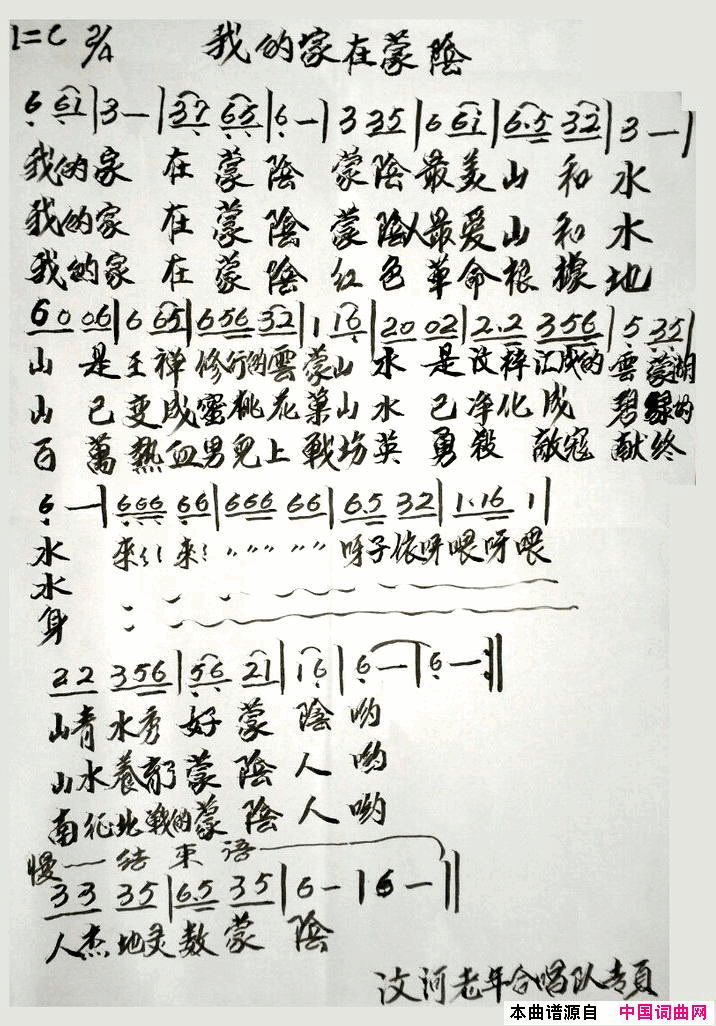 1=C 2/4 我的家在蒙陰
6 61|3—|37 65|6—|3 35|6 61|6.5 32|3—|
我的家 在 蒙 陰 蒙陰最美山 和 水
我的家 在 蒙 陰 蒙陰人最爱山 和 水
我的家 在 蒙 陰 红 色 革命根 據 地
60 06|6 65|656 32|1 16|20 02|2.2 356|5 35|
山 是王禅修行的雲蒙山 水 是汶梓汇成的 雲蒙湖
山 已变成蜜桃花菓山 水 已净化成 碧绿的
百 萬熱血男兒上戰场英 勇殺 敵寇 献终
6—|666 66|666 66|6.5 32|1.16 1|
水 來 來 呀子依呀喂呀喂
水
身
22 356|56 21|16|6—|6—:||
山青水秀 好 蒙 陰 哟
山水養育了蒙 陰 人 哟
南征北戰的蒙 陰 人 哟
慢——结 束 语——
33 35|6.5 35|6—|6—||
人杰地灵数蒙 陰
汶河老年合唱队专頁
本曲谱源自 中国词曲网